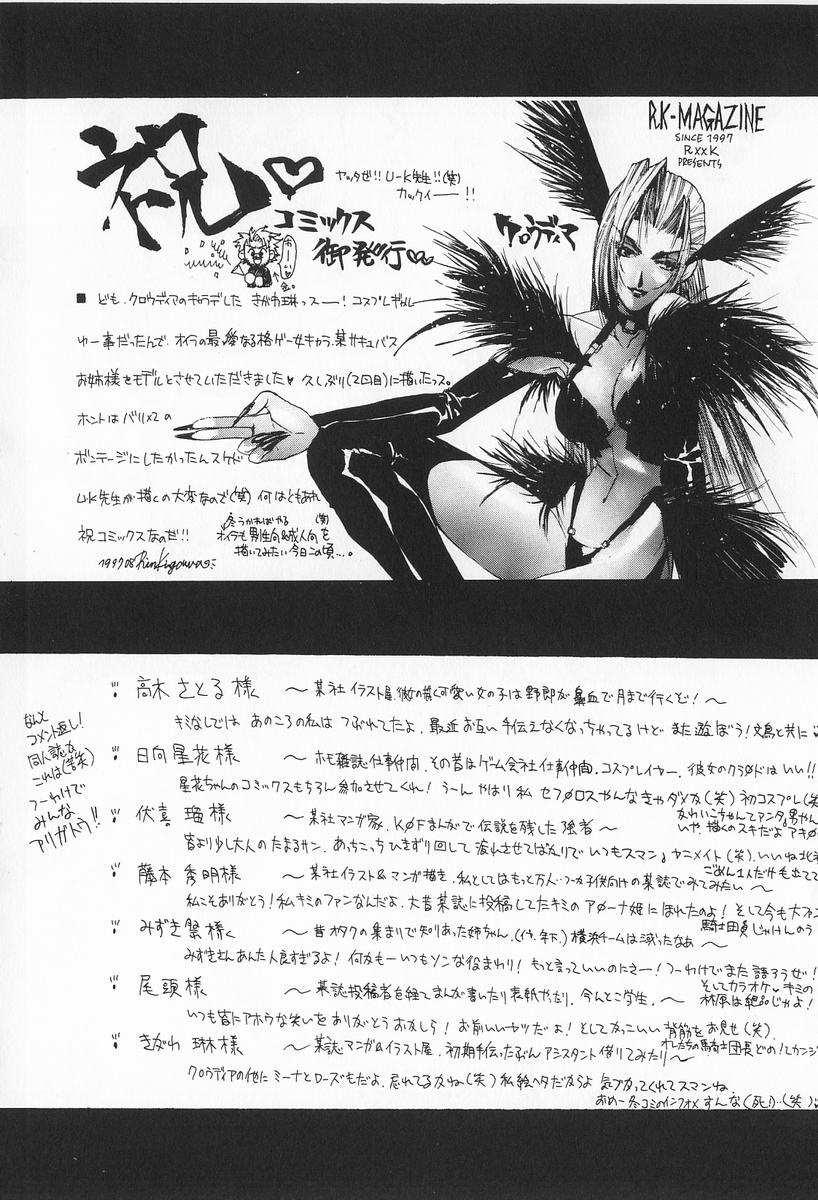 R.K-MAGAZINE
SINCE 1997
RxxK
PRESENTS
祝♡
ヤッタぜ!! U-K先生!!(笑)
カックイー――!!
コミックス
御発行♡
クロウディア
■ ども、クロウディアのキャラデした きがわ琳っスー―! コスプレギャル
ゆー事だったんで、オイラの最愛なる格ゲー女キャラ、某サキュバス
お姉様をモデルとさせていただきました♥ 久しぶり(2回目)に描いたっス。
ホントはバリバリの
ボンテージにしたかったんスケド
U-K先生が描くの大変なので(笑) 何はともあれ
祝コミックスなのだ!!
オイラも男性向&成人向を
描いてみたい今日この頃…。
1997.08
なんと
コメント返し!
同人誌な
これは(苦笑)
つーわけで
みんな
アリガトウ!!
高木 さとる 様 〜某社 イラスト屋、彼女の描く可愛い女の子は野郎が鼻血で月まで行くぞ!〜
キミなしでは あのころの私は つぶれてたよ、最近お互い手伝えなくなっちゃってるけど また遊ぼう! 文鳥と共に
日向 星花 様 〜ホモ雑誌仕事仲間、その昔はゲーム会社仕事仲間、コスプレイヤー、彼女のクラ〇ドは いい!!
星花ちゃんのコミックスもちろん参加させてくれ! うーん やはり私 セフ〇ロスやんなきゃダメか(笑) 初コスプレ(笑
かわいこちゃんてアンタ。男やん
いや、描くのスキだよ。アキ〇
伏喜 瑠 様 〜某社マンガ家、K〇Fまんがで伝説を残した強者〜
皆より少し大人のたよるサン、あっちこっちひきずり回して 疲れさせてばかりで いつもスマン。ヤニメイト(笑)、いいね北
ごめん1人だけも立てて
藤本 秀明 様 〜某社イラスト&マンガ描き、私としてはもっと万人…つーか子供向けの某誌でみてみたい〜
私こそありがとう! 私キミのファンなんだよ、大昔某誌に投稿してたキミのア〇ーナ姫にほれたのよ! そして今も大ファン
騎士団員じゃけんのう
みずき 蟹 様 〜昔オタクの集まりで知りあった姉ちゃん、(イヤ、年下) 横浜チームは減ったなあ〜
みずきさんあんた人良すぎるよ! 何かもーいつもソンななまわり! もっと言っていいのにさー! つーわけでまた語ろうぜ!
そしてカラオケ♥ キミの
林原は絶品じゃよ!
尾頭 様 〜某誌投稿者を経てまんが書いたり表紙やったり、今んとこ学生、〜
いつも皆にアホウな笑いを ありがとうおかしら! お前いいヤツだよ! そしてかっこいい背筋をお見せ(笑)
オレたちの騎士団長どの!てカンジ
きがわ 琳 様 〜某誌マンガ&イラスト屋、初期手伝ったぶんアシスタント借りてみたり〜
クロウディアの他にミーナとローズもだよ、忘れてるかね(笑) 私絵ヘタだからよ 気づかってくれてスマンね、
おめー冬コミのインフォメすんな(死)…(笑)